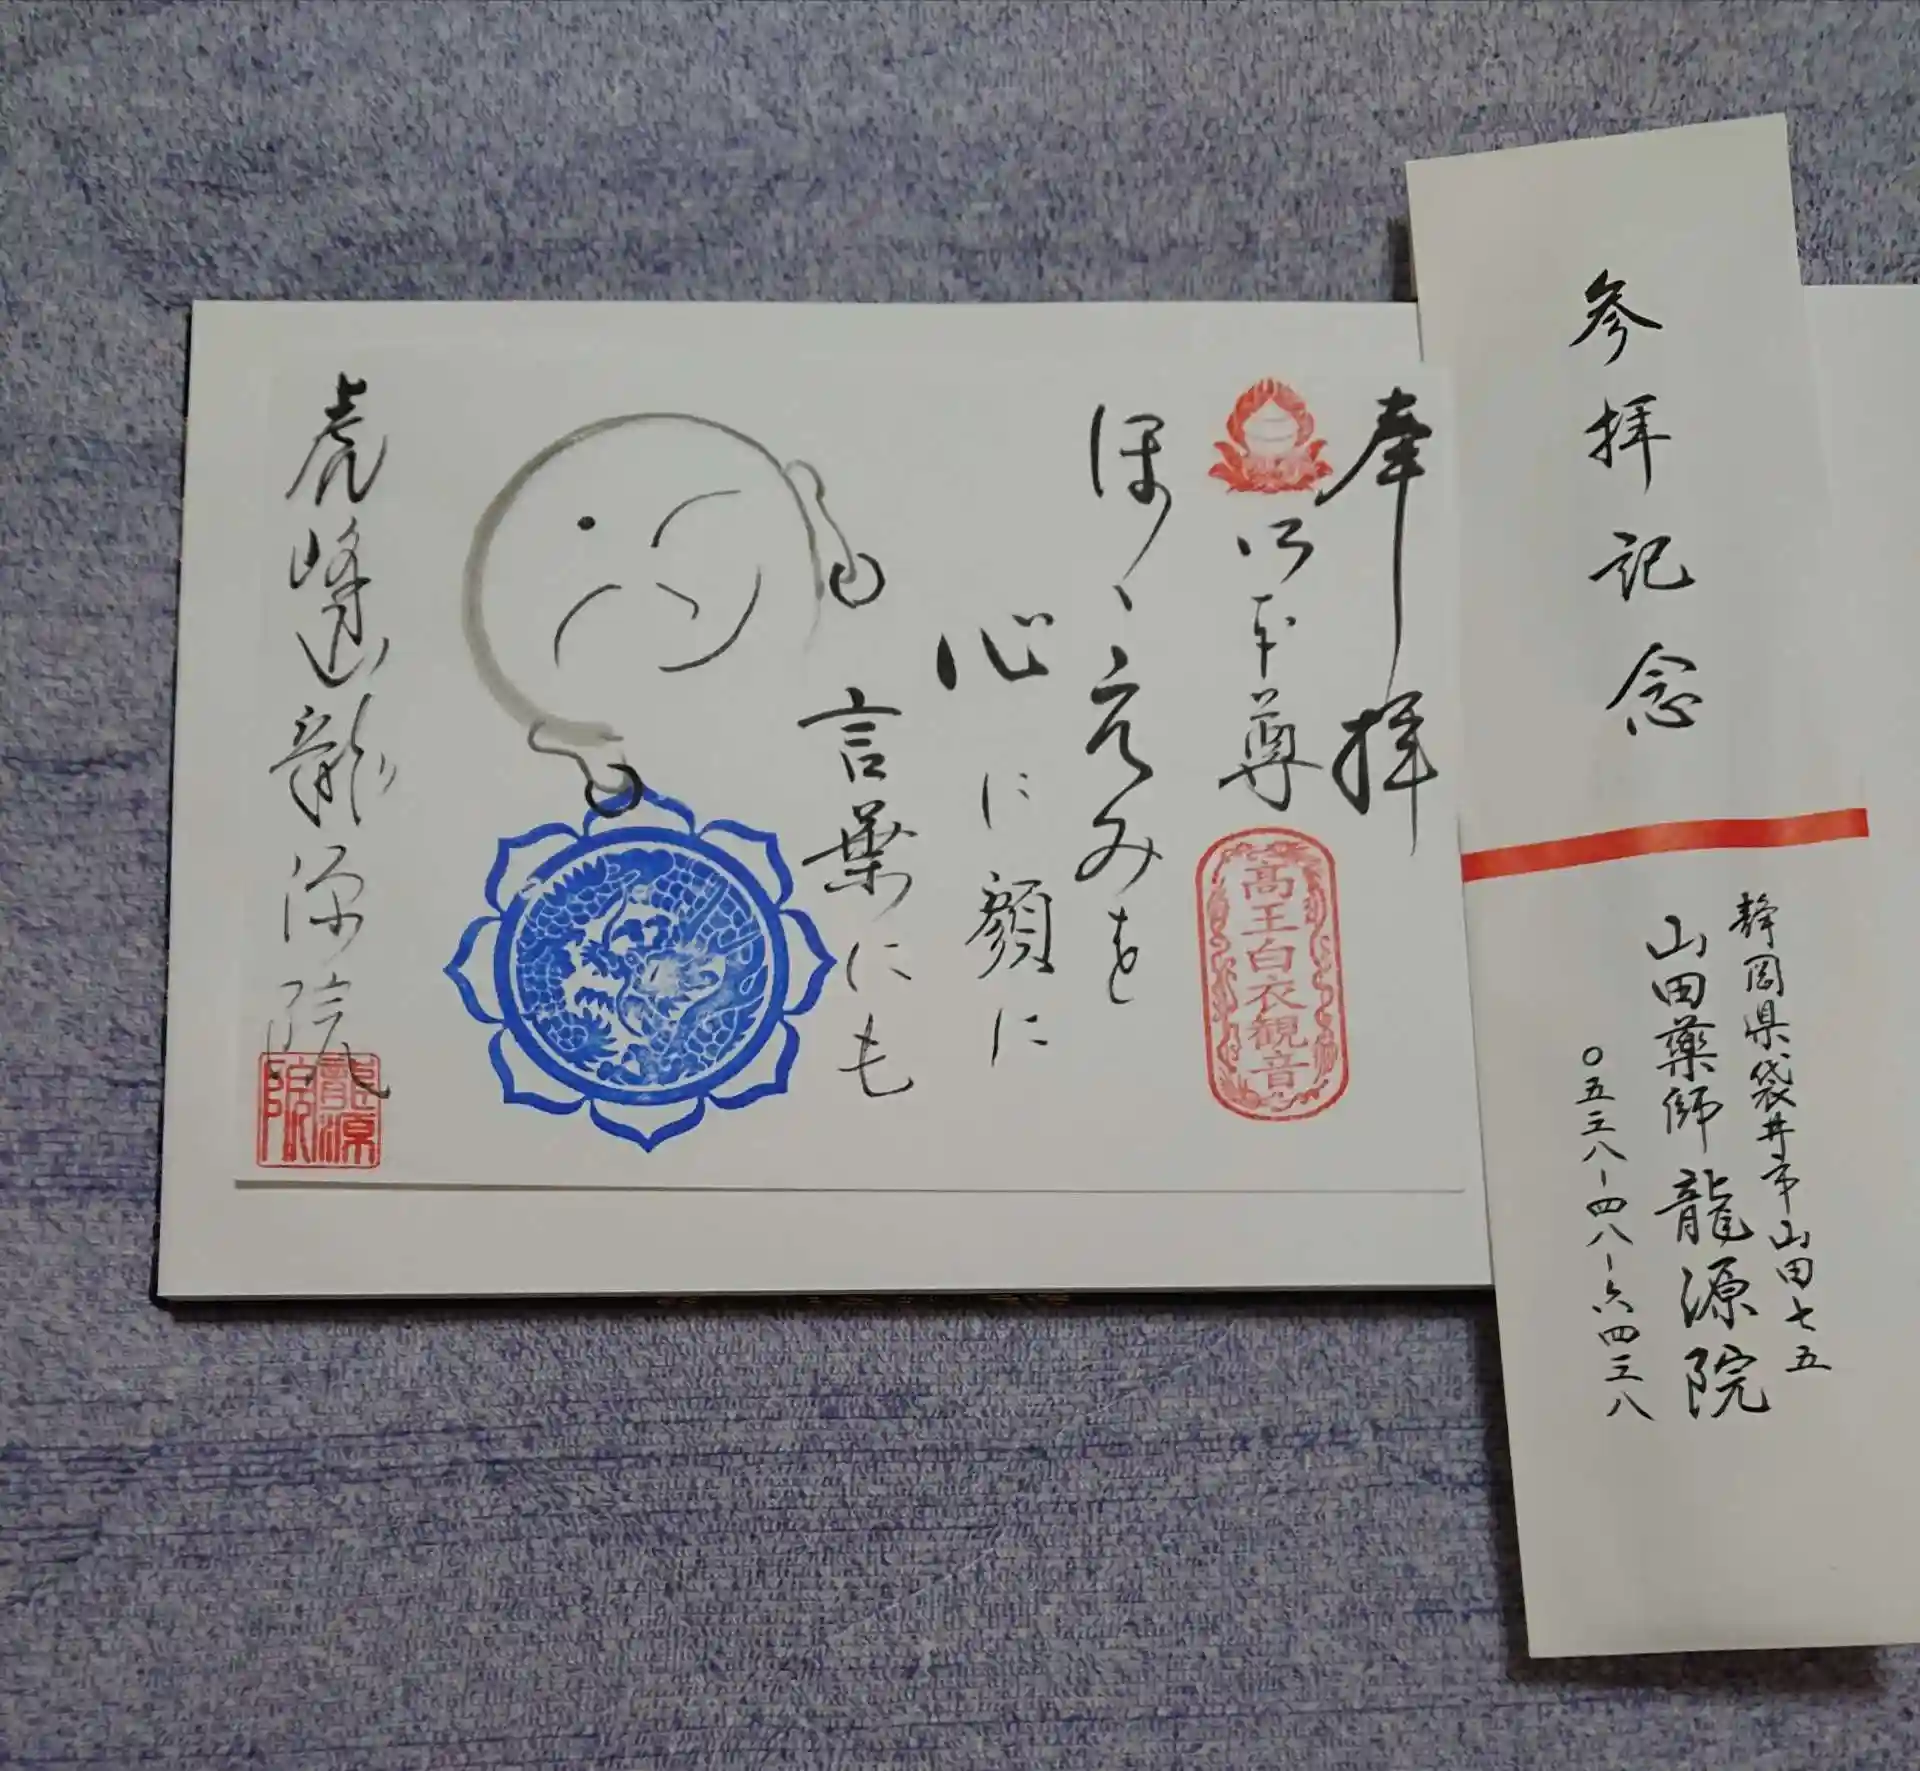 参拝記念
静岡県袋井市山田七五
山田薬師龍源院
〇五三八-四八-六四三八
奉拝
御本尊
高王白衣観音
ほゝえみを
心に顔に
言葉にも
虎峰山龍源院
龍源院